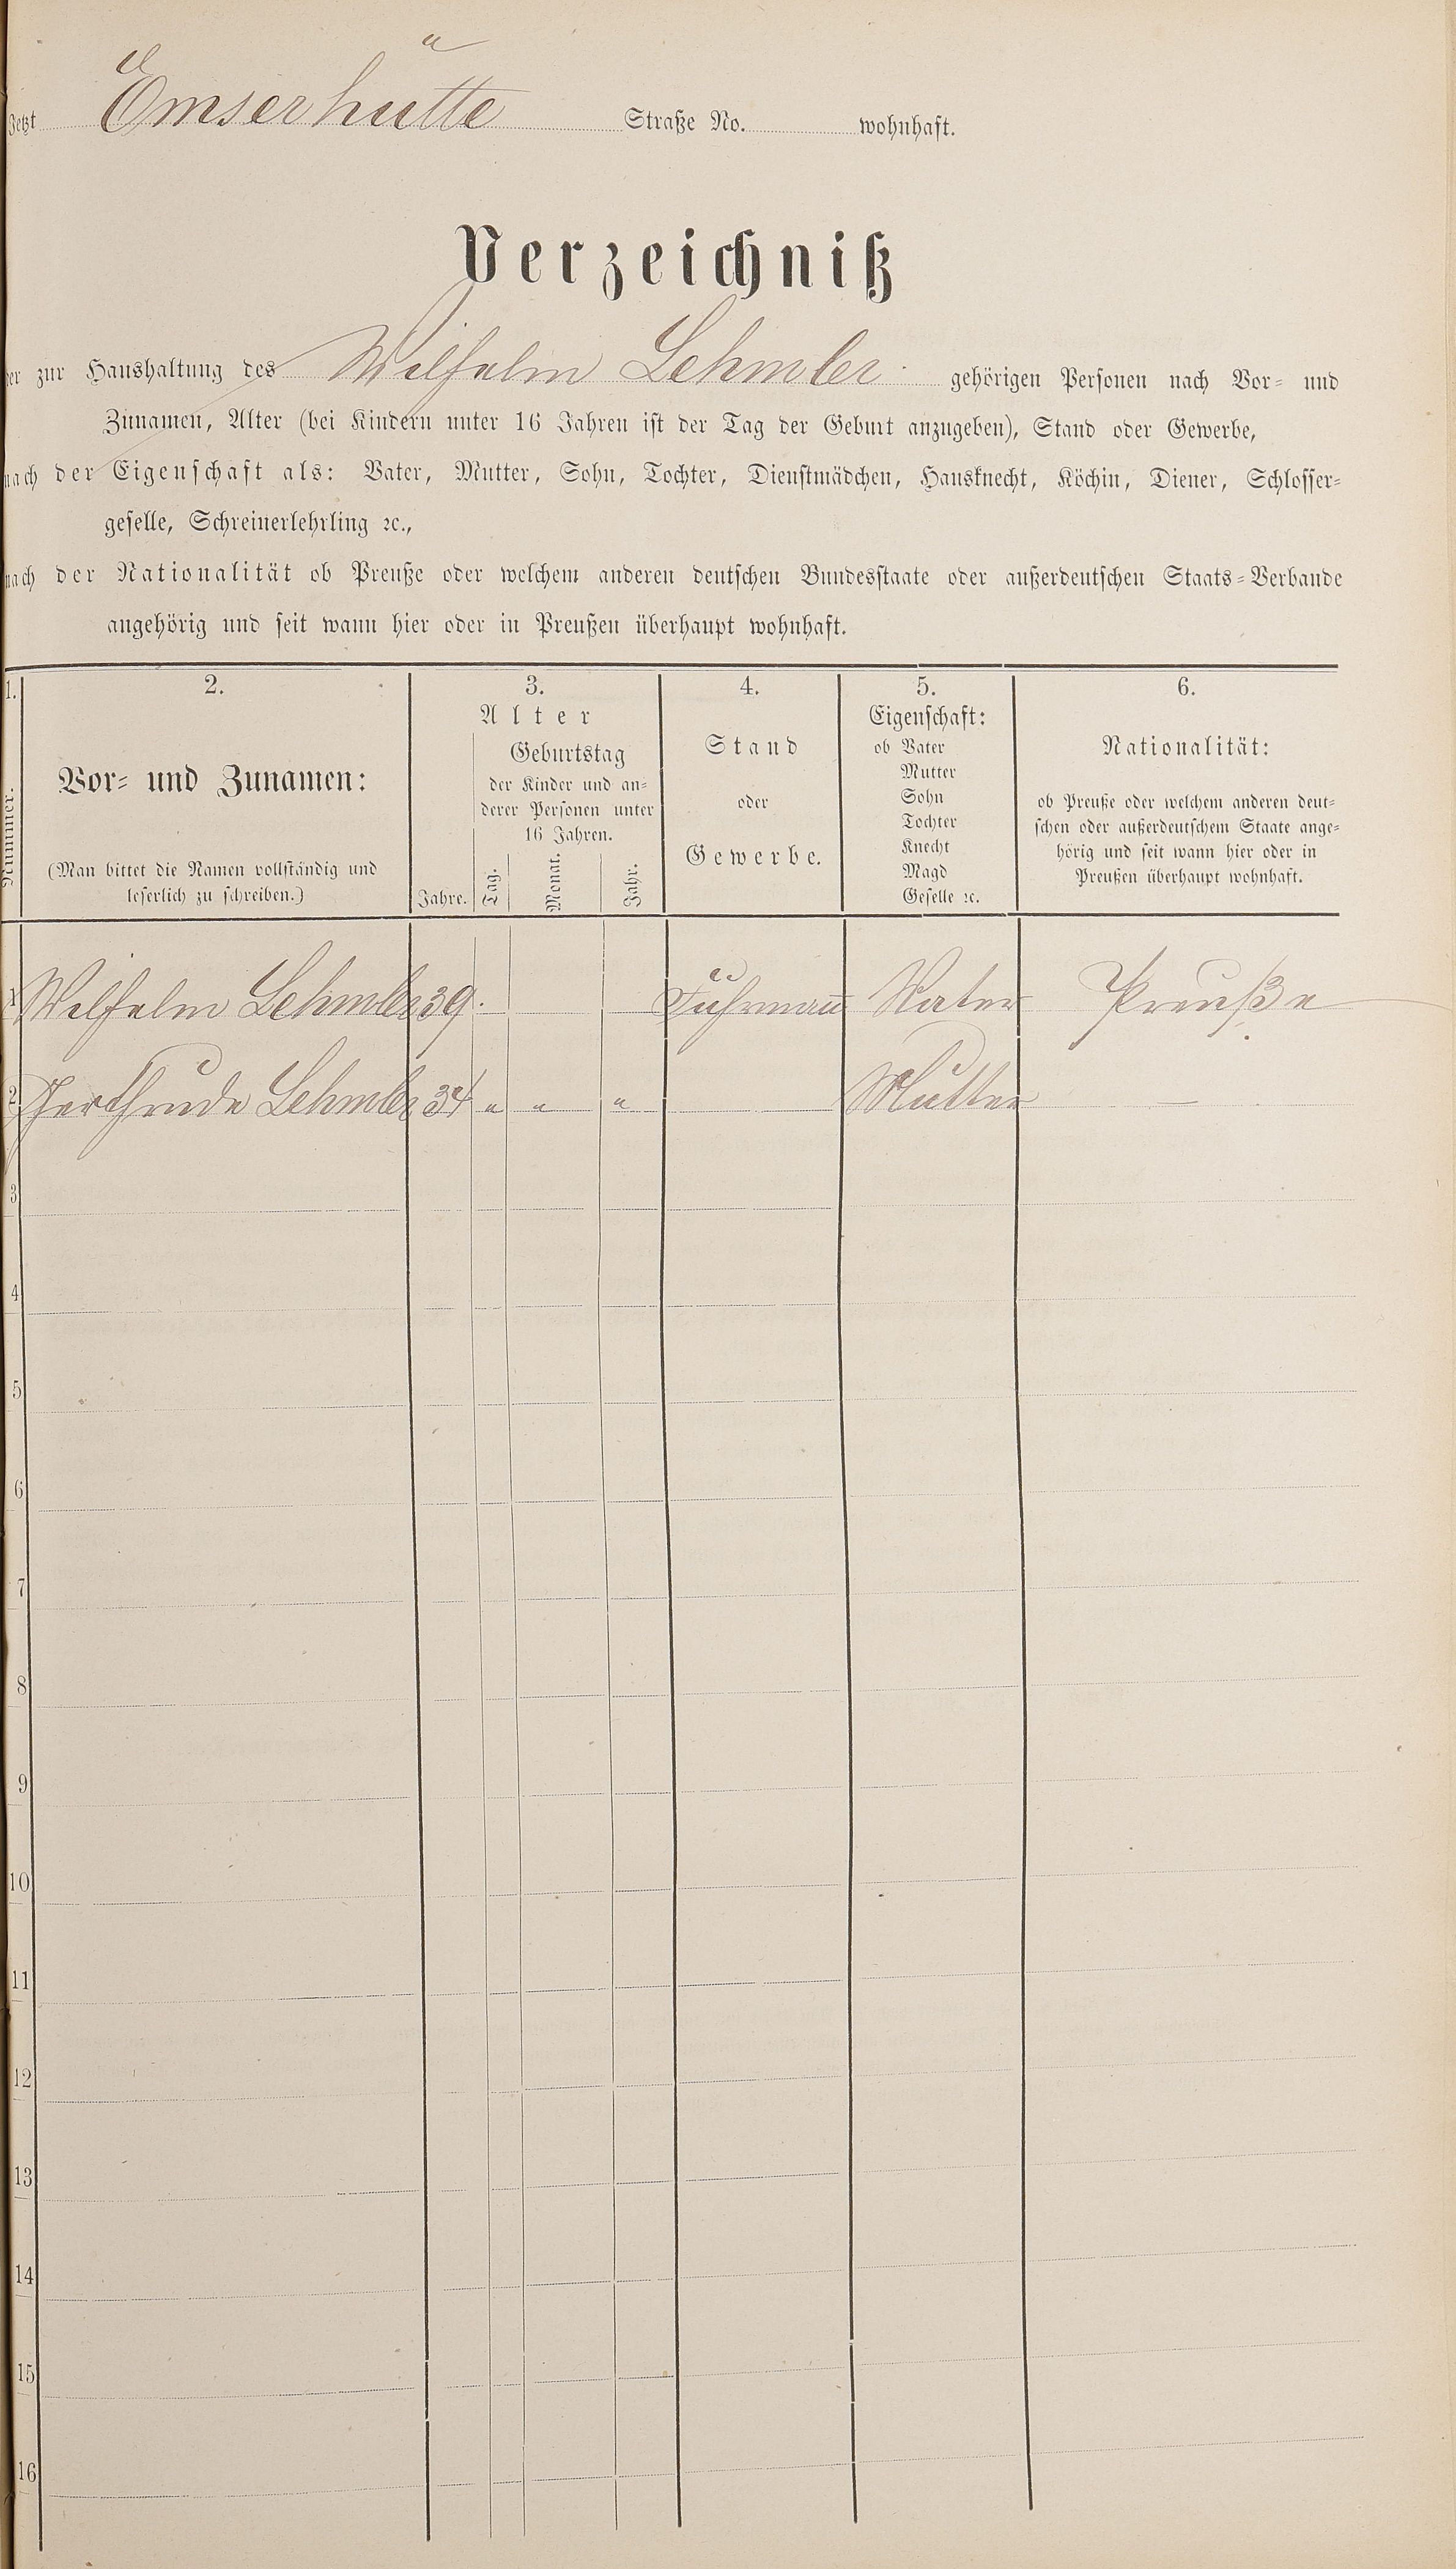 Jetzt Emserhütte Straße No. wohnhaft.
Verzeichniß
der zur Haushaltung des Wilhelm Lehmler gehörigen Personen nach Vor- und
Zunamen, Alter (bei Kindern unter 16 Jahren ist der Tag der Geburt anzugeben), Stand oder Gewerbe,
nach der Eigenschaft als: Vater, Mutter, Sohn, Tochter, Dienstmädchen, Hausknecht, Köchin, Diener, Schlosser-
geselle, Schreinerlehrling ꝛc.,
nach der Nationalität ob Preuße oder welchem anderen deutschen Bundesstaate oder außerdeutschen Staats-Verbande
angehörig und seit wann hier oder in Preußen überhaupt wohnhaft.
1. 2. 3. 4. 5. 6.
Nummer.
Vor- und Zunamen:
(Man bittet die Namen vollständig und
leserlich zu schreiben.)
Alter
Jahre.
Geburtstag
der Kinder und an-
derer Personen unter
16 Jahren.
Tag. Monat. Jahr.
Stand
oder
Gewerbe.
Eigenschaft:
ob Vater
Mutter
Sohn
Tochter
Knecht
Magd
Geselle ꝛc.
Nationalität:
ob Preuße oder welchem anderen deut-
schen oder außerdeutschem Staate ange-
hörig und seit wann hier oder in
Preußen überhaupt wohnhaft.
1 Wilhelm Lehmler 39. Fuhrmann Vater Preuße
2 Gerthrude Lehmler 34 " " " Mutter —
3
4
5
6
7
8
9
10
11
12
13
14
15
16